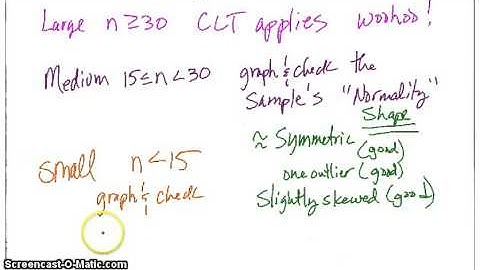 Large n ≥30 CLT applies woohoo!
Medium 15≤n<30 graph & check the
Sample's "Normality"
Shape
≈ Symmetric (good)
one outlier (good)
Slightly skewed (good)
small n<15
graph & check
Screencast-O-Matic.com